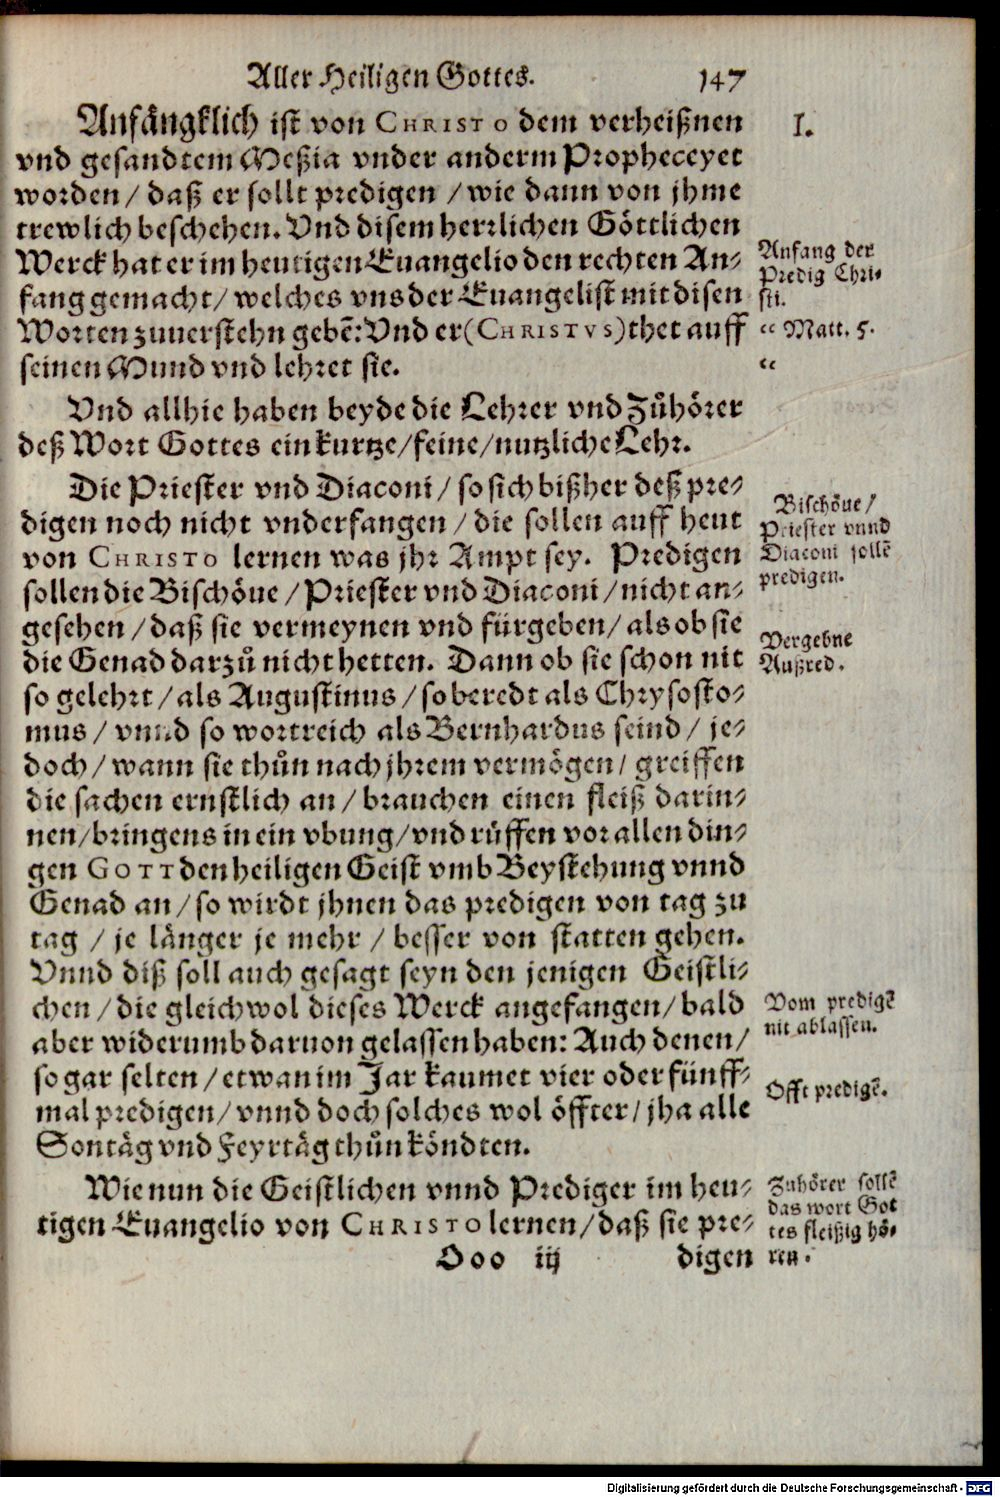 Aller Heiligen Gottes. 147
Anfängklich ist von CHRISTO dem verheißnen
vnd gesandtem Meßia vnder anderm Propheceyet
worden / daß er sollt predigen / wie dann von jhme
trewlich beschehen. Vnd disem herrlichen Göttlichen
Werck hat er im heutigen Euangelio den rechten An⸗
fang gemacht / welches vns der Euangelist mit disen
Worten zuuerstehn gebẽ: Vnd er (CHRISTVS) thet auff
seinen Mund vnd lehret sie.
Vnd allhie haben beyde die Lehrer vnd Zůhörer
deß Wort Gottes ein kurtze / feine / nutzliche Lehr.
Die Priester vnd Diaconi / so sich bißher deß pre⸗
digen noch nicht vnderfangen / die sollen auff heut
von CHRISTO lernen was jhr Ampt sey. Predigen
sollen die Bischöue / Priester vnd Diaconi / nicht an⸗
gesehen / daß sie vermeynen vnd fürgeben / als ob sie
die Genad darzů nicht hetten. Dann ob sie schon nit
so gelehrt / als Augustinus / so beredt als Chrysosto⸗
mus / vnnd so wortreich als Bernhardus seind / je⸗
doch / wann sie thůn nach jhrem vermögen / greiffen
die sachen ernstlich an / brauchen einen fleiß darin⸗
nen / bringens in ein vbung / vnd růffen vor allen din⸗
gen GOTT den heiligen Geist vmb Beystehung vnnd
Genad an / so wirdt jhnen das predigen von tag zu
tag / je länger je mehr / besser von statten gehen.
Vnnd diß soll auch gesagt seyn den jenigen Geistli⸗
chen / die gleichwol dieses Werck angefangen / bald
aber widerumb daruon gelassen haben: Auch denen /
so gar selten / etwan im Jar kaumet vier oder fünff⸗
mal predigen / vnnd doch solches wol öffter / jha alle
Sontäg vnd Feyrtäg thůn köndten.
Wie nun die Geistlichen vnnd Prediger im heu⸗
tigen Euangelio von CHRISTO lernen / daß sie pre⸗
Ooo iij digen
I.
Anfang der
Predig Chri⸗
sti.
“ Matt. 5.
“
Bischöue /
Priester vnnd
Diaconi sollẽ
predigen.
Vergebne
Außred.
Vom predigẽ
nit ablassen.
Offt predigẽ.
Zuhörer sollẽ
das wort Got
tes fleißig hö⸗
ren.
Digitalisierung gefördert durch die Deutsche Forschungsgemeinschaft - DFG